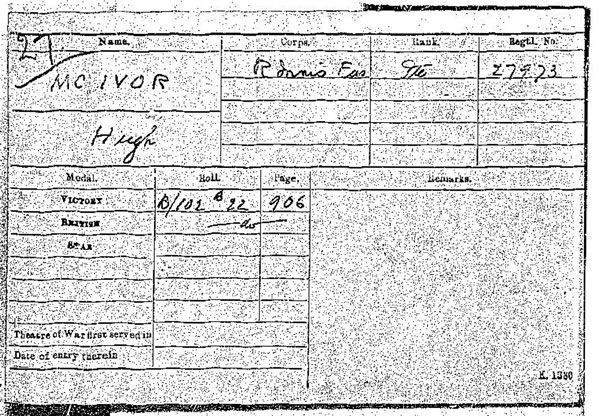 27
Name. Corps. Rank. Regtl. No.
MC IVOR R Innis Fus Pte 27973
Hugh
Medal. Roll. Page. Remarks.
VICTORY B/102 B 22 906
BRITISH — do —
STAR
Theatre of War first served in
Date of entry therein
K. 1380